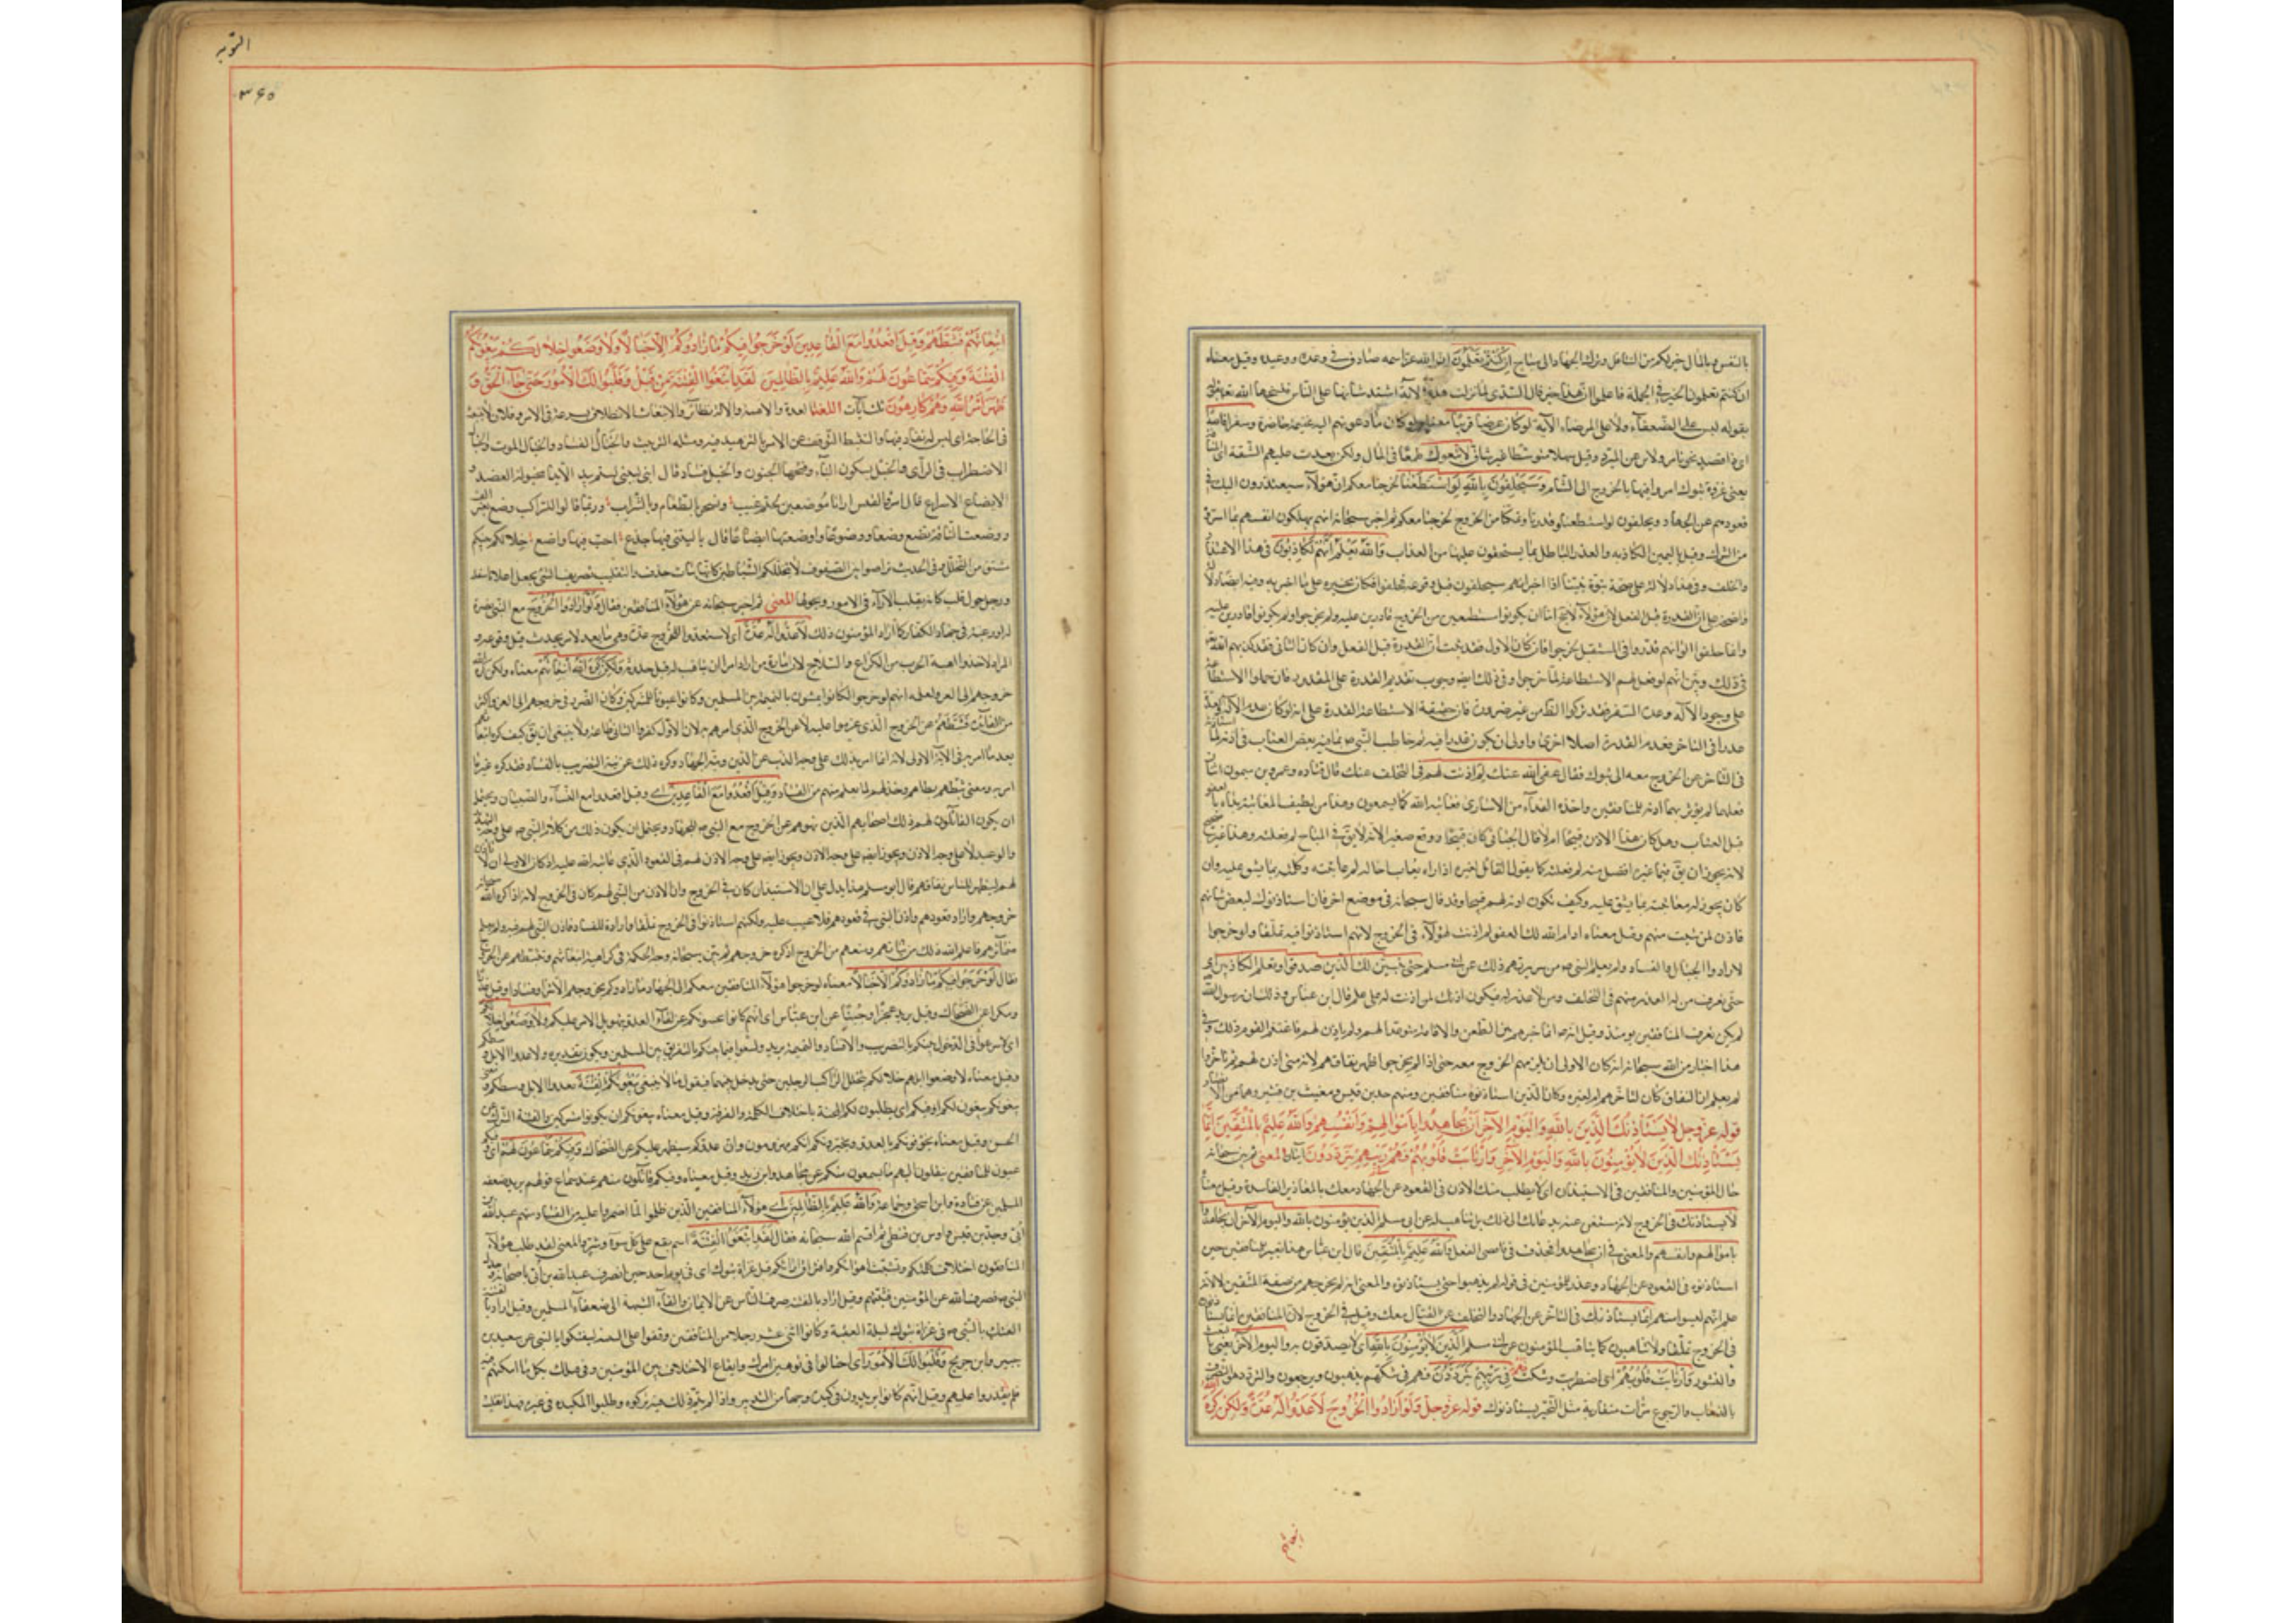 بالنفس وبالمال خير لكم من التثاقل وترك الجهاد الى مباح ان كنتم تعلمون ان الله عز اسمه صادق في وعده ووعيده وقيل معناه
ان كنتم تعلمون الخير في الجملة فاعلموا ان هذا خير قال السدي لما نزلت هذه الآية اشتد شانها على الناس فنسخها الله تعالى
بقوله ليس على الضعفاء ولا على المرضى الآية لو كان عرضا قريبا معناه لو كان ما دعوتهم اليه غنيمة حاضرة وسفرا قاصدا
اي ذا قصد وقيل سهلا متوسطا غير شاق لاتبعوك طمعا في المال ولكن بعدت عليهم الشقة اي المسافة
يعني غزوة تبوك امروا فيها بالخروج الى الشام وسيحلفون بالله لو استطعنا لخرجنا معكم ان هؤلاء سيعتذرون اليك في
قعودهم عن الجهاد ويحلفون لو استطعنا وقدرنا وتمكنا من الخروج لخرجنا معكم ثم اخبر سبحانه انهم يهلكون انفسهم بما اسروه
من الشرك وقيل باليمين الكاذبة والعذر الباطل بما يستحقون عليها من العذاب والله يعلم انهم لكاذبون في هذا الاعتذار
والحلف وفي هذا دلالة على صحة نبوة نبينا اذا اخبر انهم سيحلفون قبل وقوعه فحلفوا فكان مخبره على ما اخبر به وفيه ايضا دلالة
واضحة على ان القدرة قبل الفعل لان هؤلاء لا يخ اما ان يكونوا مستطيعين من الخروج قادرين عليه ولم يخرجوا او لم يكونوا قادرين عليه
وانما حلفوا لو انهم قدروا في المستقبل لخرجوا فان كان الاول فقد ثبت ان القدرة قبل الفعل وان كان الثاني فقد كذبهم الله
في ذلك وبين انهم لو فعل لهم الاستطاعة لما خرجوا وفي ذلك ايضا وجوب تقديم القدرة على المقدور فان حملوا الاستطاعة
على وجود الآلة وعدة السفر فقد تركوا الظاهر من غير ضرورة فان حقيقة الاستطاعة القدرة على انه لو كان عدم الآلة والعدة
عذرا في التاخر فعدم القدرة اصلا احرى واولى ان يكون عذرا فيه ثم خاطب النبي ص بما فيه بعض العتاب في اذنه لما استاذنه
في التاخر عن الخروج معه الى تبوك فقال عفى الله عنك لم اذنت لهم في التخلف عنك قال قتاده وعمرو بن ميمون اثنان
فعلهما لم يؤمر بهما اذنه للمنافقين واخذه الفداء من الاسارى فعاتبه الله كما تسمعون وهذا من لطيف المعاتبة بداه بالعفو
قبل العتاب وهل كان هذا الاذن قبيحا ام لا قال الجبائي كان قبيحا ووقع صغيرا لانه لا يق في المباح لم فعلته وهذا غير صحيح
لانه يجوز ان يق فيما غيره افضل منه لم فعلته كما يقول القائل لغيره اذا راه يعاتب اخا له لم عاتبته وكلمته بما يشق عليه وان
كان يجوز له معاتبته بما يشق عليه وكيف يكون اذنه لهم قبيحا وقد قال سبحانه في موضع اخر فاذا استاذنوك لبعض شانهم
فاذن لمن شئت منهم وقيل معناه ادام الله لك العفو لم اذنت لهؤلاء في الخروج لانهم استاذنوا فيه تملقا ولو خرجوا
لارادوا الخبال والفساد ولم يعلم النبي ص من سريرتهم ذلك عن ابي مسلم حتى يتبين لك الذين صدقوا وتعلم الكاذبين اي
حتى تعرف من له العذر منهم في التخلف ومن لا عذر له فيكون اذنك لمن اذنت له على علم قال ابن عباس وذلك ان رسول الله
لم يكن يعرف المنافقين يومئذ وقيل انه انما خيرهم بين الظعن والاقامة متوعدا لهم ولم ياذن لهم فاغتنم القوم ذلك وفي
هذا اخبار من الله سبحانه انه كان الاولى ان يلزمهم الخروج معه حتى اذا لم يخرجوا ظهر نفاقهم لانه متى اذن لهم ثم تاخروا
لم يعلم ان النفاق كان لتاخرهم ام لغيره وكان الذين استاذنوه منافقين ومنهم جد بن قيس ومعتب بن قشير وهما من الانصار
قوله عز وجل لا يستاذنك الذين يؤمنون بالله واليوم الآخر ان يجاهدوا باموالهم وانفسهم والله عليم بالمتقين انما
يستاذنك الذين لا يؤمنون بالله واليوم الآخر وارتابت قلوبهم فهم في ريبهم يترددون آيتان المعنى ثم بين سبحانه
حال المؤمنين والمنافقين في الاستيذان اي لا يطلب منك الاذن في القعود عن الجهاد معك بالمعاذير الفاسدة وقيل معناه
لا يستاذنك في الخروج لانه مستغن عنه بدعائك الى ذلك بل يتاهب له عن ابي مسلم الذين يؤمنون بالله واليوم الآخر ان يجاهدوا
باموالهم وانفسهم والمعنى في ان يجاهدوا فحذف في فافضى الفعل والله عليم بالمتقين قال ابن عباس هذا تعيير للمنافقين حين
استاذنوه في القعود عن الجهاد وعذر للمؤمنين في قوله لم يذهبوا حتى يستاذنوه والمعنى انه لم يخرجهم من صفة المتقين الا انه
علم انهم ليسوا منهم انما يستاذنك في التاخر عن الجهاد والتخلف عن القتال معك وقيل في الخروج لان المنافقين انما يستاذنون
في الخروج تملقا ولا يتاهبون كما يتاهب المؤمنون عن ابي مسلم الذين لا يؤمنون بالله اي لا يصدقون به واليوم الآخر يعني بالبعث
والنشور وارتابت قلوبهم اي اضطربت وشكت فهم في ريبهم يترددون فهم في شكهم يذهبون ويرجعون والتردد هو التصرف
بالذهاب والرجوع مرات متقاربة مثل التحير يستاذنوك قوله عز وجل ولو ارادوا الخروج لاعدوا له عدة ولكن كره الله
انبعاثهم
التوبه
٣٦٥
انبعاثهم فثبطهم وقيل اقعدوا مع القاعدين لو خرجوا فيكم ما زادوكم الا خبالا ولاوضعوا خلالكم يبغونكم
الفتنة وفيكم سماعون لهم والله عليم بالظالمين لقد ابتغوا الفتنة من قبل وقلبوا لك الامور حتى جاء الحق و
ظهر امر الله وهم كارهون ثلث آيات اللغة العدة والاهبة والآلة نظائر والانبعاث الانطلاق بسرعة في الامر وفلان لا ينبعث
في الحاجة اي ليس له نفاذ فيها والتثبط التوقف عن الامر بالتزهيد فيه ومثله التربيث والخبال الفساد والخبال الموت والخبال
الاضطراب في الراى والخبل بسكون الباء وفتحها الجنون والخبل فساد قال ابني لبينى لستم بيد الا يدا مخبولة العضد و
الايضاع الاسراع قال امرؤ القيس ارانا موضعين لحتم غيب ونسحر بالطعام وبالشراب وربما قالوا للراكب وضع
ووضعت الناقة تضع وضعا ووضوعا واوضعتها ايضاعا قال يا ليتني فيها جذع اخب فيها واضع خلالكم بينكم
مشتق من التخلل وفي الحديث تراصوا بين الصفوف لا يتخللكم الشياطين كانها بنات حذف والتقليب تصريف الشيء بجعل اعلاه اسفله
ورجل حول قلب كانه يقلب الآراء في الامور ويحولها المعنى ثم اخبر سبحانه عن هؤلاء المنافقين فقال ولو ارادوا الخروج مع النبي نصرة
له او رغبة في جهاد الكفار كما اراد المؤمنون ذلك لاعدوا له عدة اي لاستعدوا للخروج عدة وهي ما يعد لامر يحدث قبل وقوعه و
المراد لاخذوا اهبة الحرب من الكراع والسلاح لان امارة من اراد امرا ان يتاهب له قبل حدوثه ولكن كره الله انبعاثهم معناه ولكن كره الله
خروجهم الى الغزو لعلمه انهم لو خرجوا لكانوا يمشون بالنميمة بين المسلمين وكانوا عيونا للمشركين وكان الضرر في خروجهم الى الغزو اكثر
من الفائدة فثبطهم عن الخروج الذي عزموا عليه لا عن الخروج الذي امرهم به لان الاول كفر والثاني طاعة ولا ينبغي ان يق كيف كره انبعاثهم
بعد ما امر به في الآية الاولى لانه انما امر بذلك على وجه الذب عن الدين ونية الجهاد وكره ذلك عن نية التضريب بالفساد فقد كره غير ما
امر به ومعنى ثبطهم بطاهم وخذلهم لما يعلم منهم من الفساد وقيل اقعدوا مع القاعدين اي وقيل اقعدوا مع النساء والصبيان ويحتمل
ان يكون القائلون لهم ذلك اصحابهم الذين نهوهم عن الخروج مع النبي ص للجهاد ويحتمل ان يكون ذلك من كلام النبي ص على وجه التهديد
والوعيد لا على وجه الاذن ويجوز ايضا على وجه الاذن لهم في القعود الذي عاتبه الله عليه اذ كان الاولى ان لا ياذن
لهم ليظهر للناس نفاقهم قال ابو مسلم هذا يدل على ان الاستيذان كان في الخروج وان الاذن من النبي لهم كان في الخروج لانه اذا كره الله سبحانه
خروجهم واراد قعودهم واذن النبي في قعودهم فلا عيب عليه ولكنهم استاذنوا في الخروج تملقا وارادة للفساد فاذن النبي لهم فيه ولم يعلم
ضمائرهم فاعلم الله ذلك من نياتهم ومنعهم من الخروج اذ كره خروجهم ثم بين سبحانه وجه الحكمة في كراهية انبعاثهم وتثبيطهم عن الخروج
فقال لو خرجوا فيكم ما زادوكم الا خبالا معناه لو خرجوا هؤلاء المنافقين معكم الى الجهاد ما زادوكم بخروجهم الا شرا وفسادا وقيل غدرا
ومكرا عن الضحاك وقيل يريد عجزا وجبنا عن ابن عباس اي انهم كانوا يجبنونكم عن لقاء العدو بتهويل الامر عليكم ولاوضعوا خلالكم
اي لاسرعوا في الدخول بينكم بالتضريب والافساد والنميمة يريد ولسعوا فيما بينكم بالتفريق بين المسلمين ويكون تقديره ولاعدوا الابل وسطكم
وقيل معناه لاوضعوا ابلهم خلالكم يتخلل الراكب الرجلين حتى يدخل بينهما فيقول ما لا ينبغي يبغونكم الفتنة بعدو الابل وسطكم ومعنى
يبغونكم يبغون لكم او فيكم اي يطلبون لكم المحنة باختلاف الكلمة والفرقة وقيل معناه يبغونكم ان تكونوا مشركين والفتنة الشرك عن
الحسن وقيل معناه يخوفونكم بالعدو ويخبرونكم انكم مهزومون وان عدوكم سيظهر عليكم عن الضحاك وفيكم سماعون لهم اي وفيكم
عيون للمنافقين ينقلون اليهم ما يسمعون منكم عن مجاهد وابن زيد وقيل معناه وفيكم قائلون منهم عند سماع قولهم يريد ضعفة
المسلمين عن قتادة وابن اسحق وجماعة والله عليم بالظالمين اي هؤلاء المنافقين الذين ظلموا لما اضمروا عليه من الفساد منهم عبد الله بن
ابي وجد بن قيس واوس بن قبطي ثم اقسم الله سبحانه فقال لقد ابتغوا الفتنة اسم يقع على كل سوء وشر والمعنى لقد طلب هؤلاء
المنافقون اختلاف كلمتكم وتشتت اهوائكم وافتراق ارائكم قبل غزاة تبوك اي في يوم احد حين انصرف عبد الله بن ابي باصحابه وخذل
النبي ص فصرف الله عن المؤمنين فتنتهم وقيل اراد بالفتنة صرف الناس عن الايمان والقاء الشبهة الى ضعفاء المسلمين وقيل اراد بالفتنة
الفتك بالنبي ص في غزاة تبوك ليلة العقبة وكانوا اثني عشر رجلا من المنافقين وقفوا على الثنية ليفتكوا بالنبي عن سعيد بن
جبير وابن جريج وقلبوا لك الامور اي احتالوا في توهين امرك وايقاع الاختلاف بين المؤمنين وفي قتلك بكل ما امكنهم فيه
فلم يقدروا عليه وقيل انهم كانوا يريدون في كيده وجها من التدبير واذا لم يتم ذلك فيه تركوه وطلبوا المكيدة في غيره فهذا تقليب